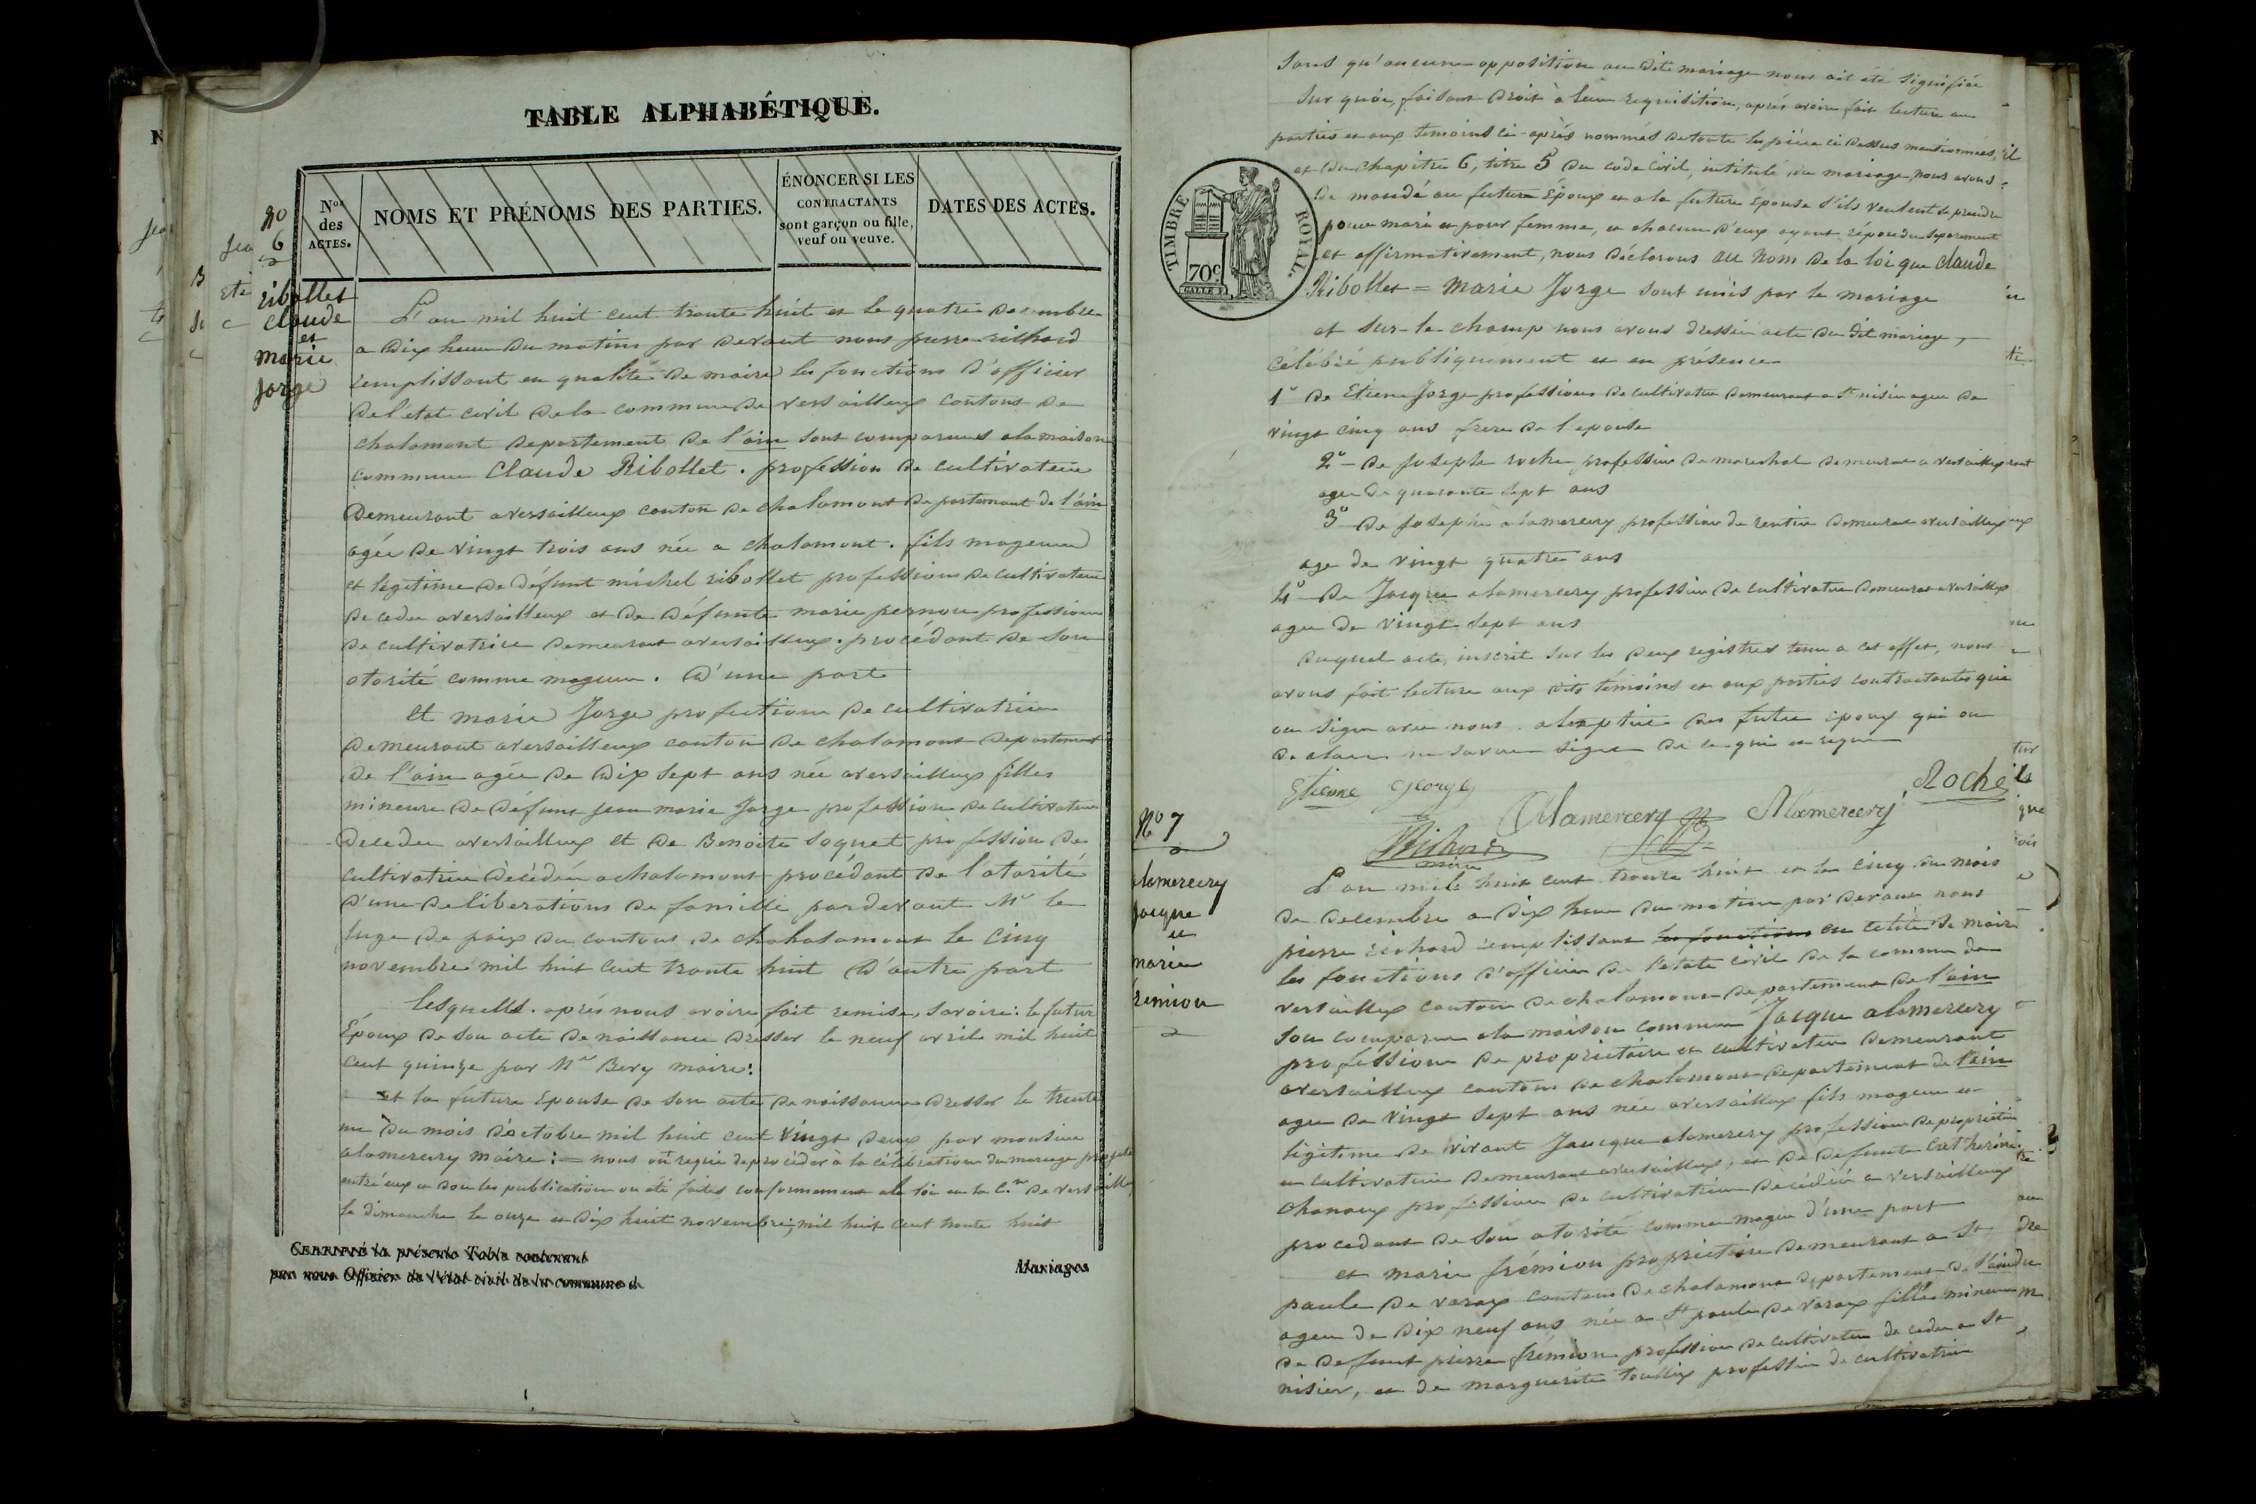 TABLE ALPHABÉTIQUE.
Nos des ACTES.
NOMS ET PRÉNOMS DES PARTIES.
ÉNONCER SI LES CONTRACTANTS sont garçon ou fille, veuf ou veuve.
DATES DES ACTES.
No
6
ribollet
claude
et
marie
jorge
L'an mil huit cent trante huit et le quatre decembre
a dix heure du matins par devant nous pierre richard
remplissant en qualité de maire les fonctions d'officier
de l'etat civil de la commune de versailleux contons de
chalamont departement de l'ain sont comparues a la maison
commune Claude Ribollet . profession de cultivateur
Demeurant a versailleux conton de chalamont departement de l'ain
agée de vingt trois ans née a chalamont . fils mageur
et légitime de défunt michel ribollet profession de cultivateur
decedu a versailleux et de défunte marie pernou profession
de cultivatrice demeurant a versailleux . procédant de son
otorité comme mageur . d'une part
et marie Jorge profection de cultivatrice
demeurant a versailleux conton de chalamont departement
de l'ain agée de dix sept ans née a versailleux filles
mineure de défunt jean marie Jorge profession de cultivateur
decedu a versailleux et de Benoite soquet profession de
cultivatrice dècèdée a chalamont procédant de l'otorité
d'une deliberations de famille pardevant Mr le
juge de paix du contons de chahalamont le cinq
novembre mil huit cent trante huit d'autre part
lesquells . après nous avoire fait remise, savoire : le futur
Époux de son acte de naissance dresser le neuf avril mil huit
cent quinze par Mr Bery maire :
et la future Epouse de son acte de naissance dresser le trente
un du mois d'octobre mil huit cent vingt deux par monsieur
alamercery maire : = nous ont requie de procéder à la célébration du mariage projeté
entré eux et dont les publication on été faites conformement a la loi en la C.ne de versailleux
le dimanche le onze et dix huit novembre, mil huit cent trante huit
CERTIFIÉ la présente Table contenant
par nous Officier de l'état civil de la commune d
Mariages
sans qu'aucune opposition au dite mariage nous ait été signifiée
sur quoi, faisant droit à leur requisition, après avoire fait lecture au
parties et aux temoins ci-après nommés de toute les pièce ci dessus mentionnées, il
et du chapitre 6, titre 5 du code Civil, intitulé du mariage, nous avons
de mandé au futur Époux et a la future Épouse s'ils veulent se prendre
pour mari et pour femme, et chacun d'eux ayant répondu séparement
et affirmativement, nous déclarons au nom de la loi que claude
Ribollet = marie Jorge sont unis par le mariage
TIMBRE ROYAL.
70c
et sur-le-champ nous avons dressé acte du dit mariage,
célébré publiquement et en présence
1° de Etiene Jorge profession de cultivateur demeurant a St nisier agee de
vingt cinq ans frere de l'epouse
2° de joseph roche profession de marechal demeurant a versailleux
agee de quarante sept ans
3° de joseph alamercery profession de rentier demeurant a versailleux
age de vingt quatre ans
4° de Jacque alamercery profession de cultivateur demeurant a versailleux
agee de vingt sept ans
duquel acte, inscrit sur les deux registres tenu a cet effet, nous
avons fait lecture aux dits témoins et aux parties contractantes qui
on signe avec nous . a lexeptice des futur epoux qui on
declarer ne savoir signe de ce qui en requi
Etienne George
Alamercery
Alamercery
Roche
Richard
maire
No 7
alamercery
jacque
et
marie
fremion
L'an mile huit cent trante huit et le cinq du mois
de decembre a dix heure du matin par devant nous
pierre richard remplissant les fonctions en calité de maire
les fonctions d'officier de l'état civil de la commune de
versailleux canton de chalamont departement de l'ain
son comparu a la maison commune Jacque alamercery
profession de proprietaire et cultivateur demeurant
a versailleux contons de chalamont departement de l'ain
agee de vingt sept ans née a versailleux fils mageur et
légitime de vivant Jaucque alamercery profession de proprietaire
et cultivateur demeurant a versailleux, et de defunte Catherine
chanoux profession de cultivatrice dècèdée a versailleux
procedant de son otorité comme mageur d'une part
et marie frémion proprietaire demeurant a St
paule de varax contons de chalamont departement de l'ain
agee de dix neuf ans née a St paule de varax filles mineure
de defunt pierre frémion profession de cultivateur decedu a St
nisier, et de marguerite touillix profession de cultivatrice